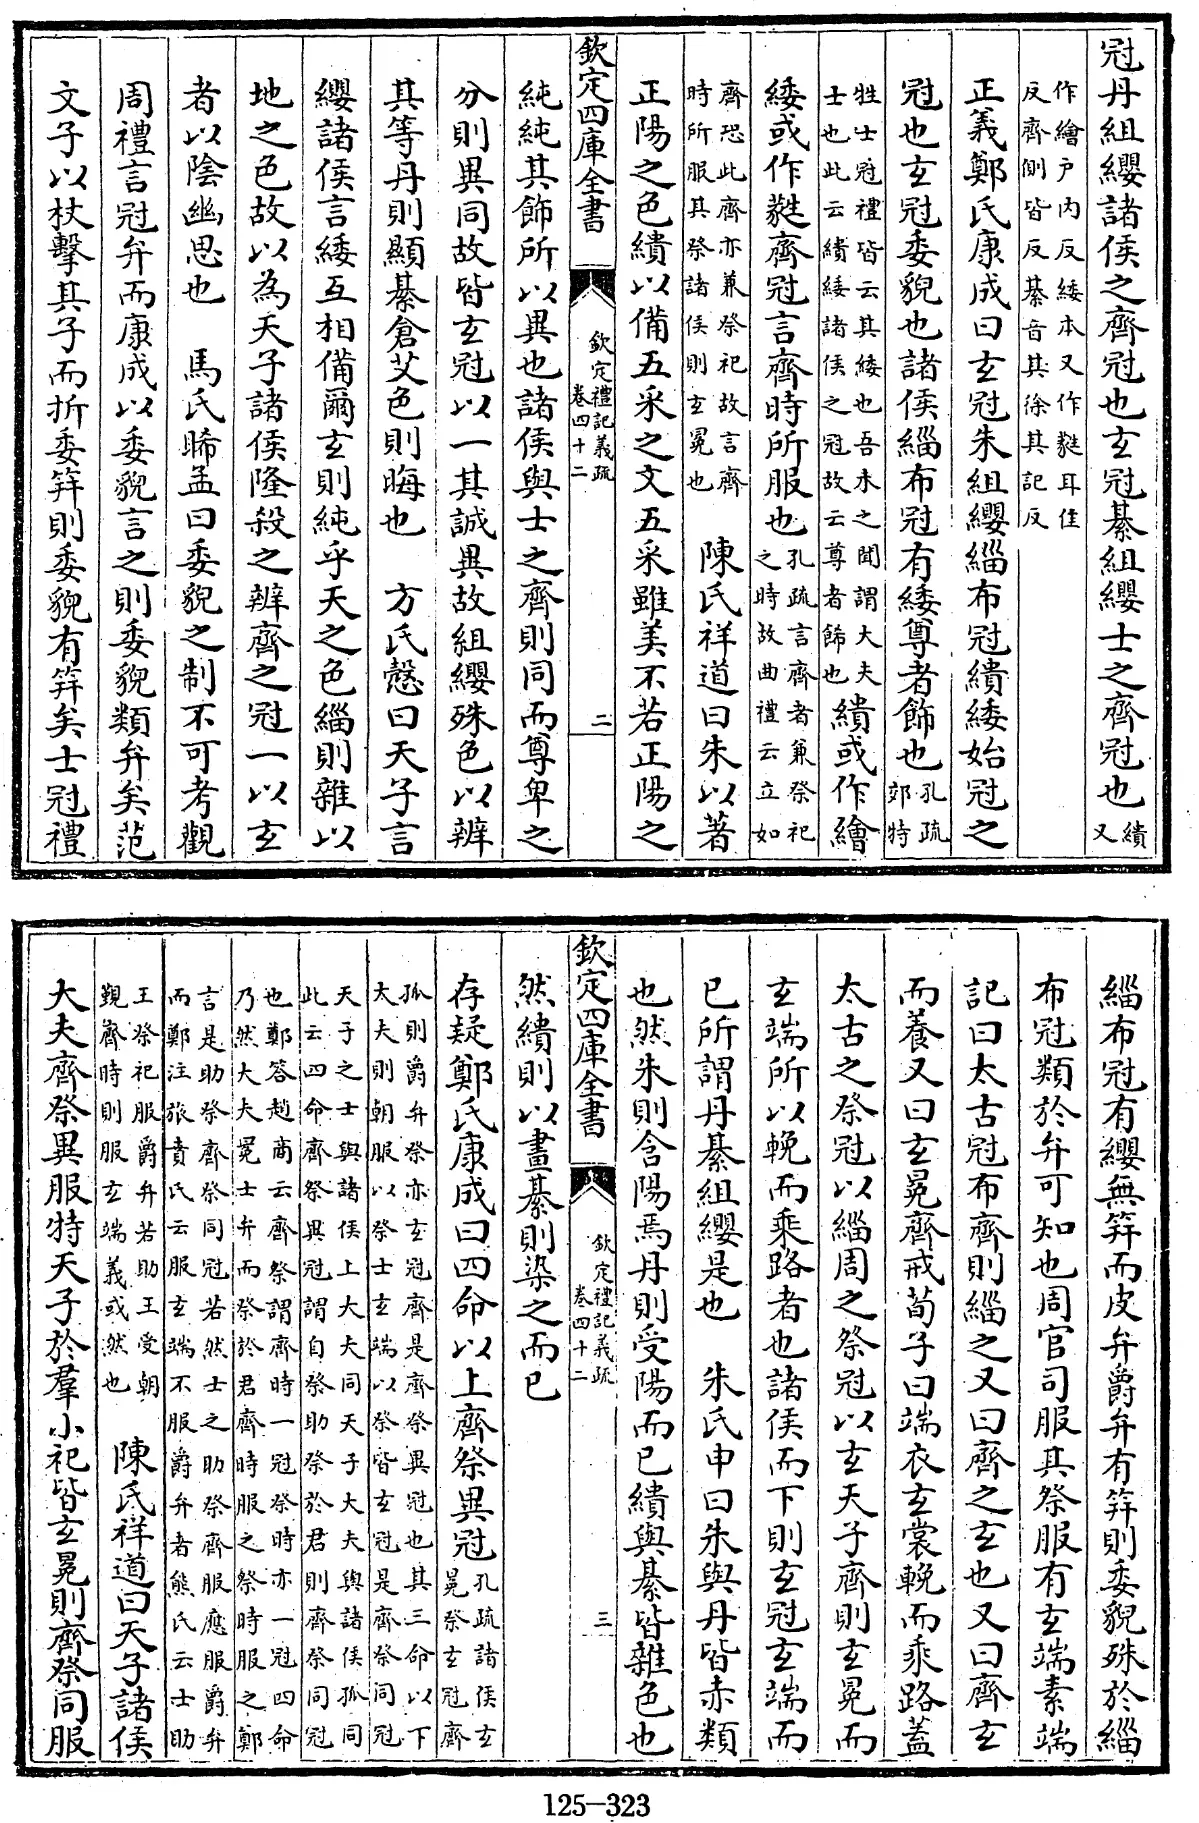 冠丹組纓諸侯之齊冠也玄冠綦組纓士之齊冠也繢又
作繪戶内反緌本又作蕤耳佳
反齊側皆反綦音其徐其記反
正義鄭氏康成曰玄冠朱組纓緇布冠繢緌始冠之
冠也玄冠委貌也諸侯緇布冠有緌尊者飾也孔疏郊特
牲士冠禮皆云其緌也吾未之聞謂大夫
士也此云繢緌諸侯之冠故云尊者飾也繢或作繪
緌或作蕤齊冠言齊時所服也孔疏言齊者兼祭祀
之時故曲禮云立如
齊恐此齊亦兼祭祀故言齊
時所服其祭諸侯則玄冕也陳氏祥道曰朱以著
正陽之色繢以備五采之文五采雖美不若正陽之
欽定四庫全書 欽定禮記義疏 卷四十二 二
純純其飾所以異也諸侯與士之齊則同而尊卑之
分則異同故皆玄冠以一其誠異故組纓殊色以辨
其等丹則顯綦倉艾色則晦也 方氏慤曰天子言
纓諸侯言緌互相備爾玄則純乎天之色緇則雜以
地之色故以為天子諸侯隆殺之辨齊之冠一以玄
者以陰幽思也 馬氏晞孟曰委貌之制不可考觀
周禮言冠弁而康成以委貌言之則委貌類弁矣范
文子以杖擊其子而折委笄則委貌有笄矣士冠禮
緇布冠有纓無笄而皮弁爵弁有笄則委貌殊於緇
布冠類於弁可知也周官司服其祭服有玄端素端
記曰太古冠布齊則緇之又曰齊之玄也又曰齊玄
而養又曰玄冕齊戒荀子曰端衣玄裳輓而乘路蓋
太古之祭冠以緇周之祭冠以玄天子齊則玄冕而
玄端所以輓而乘路者也諸侯而下則玄冠玄端而
已所謂丹綦組纓是也 朱氏申曰朱與丹皆赤類
也然朱則含陽焉丹則受陽而已繢與綦皆雜色也
欽定四庫全書 欽定禮記義疏 卷四十二 三
然繢則以畫綦則染之而已
存疑鄭氏康成曰四命以上齊祭異冠孔疏諸侯玄
冕祭玄冠齊
孤則爵弁祭亦玄冠齊是齊祭異冠也其三命以下
大夫則朝服以祭士玄端以祭皆玄冠是齊祭同冠
天子之士與諸侯上大夫同天子大夫與諸侯孤同
此云四命齊祭異冠謂自祭助祭於君則齊祭同冠
也鄭答趙商云齊祭謂齊時一冠祭時亦一冠四命
乃然大夫冕士弁而祭於君齊時服之祭時服之鄭
言是助祭齊祭同冠若然士之助祭齊服應服爵弁
而鄭注旅賁氏云服玄端不服爵弁者熊氏云士助
王祭祀服爵弁若助王受朝
覲齊時則服玄端義或然也陳氏祥道曰天子諸侯
大夫齊祭異服特天子於羣小祀皆玄冕則齊祭同服
125-323